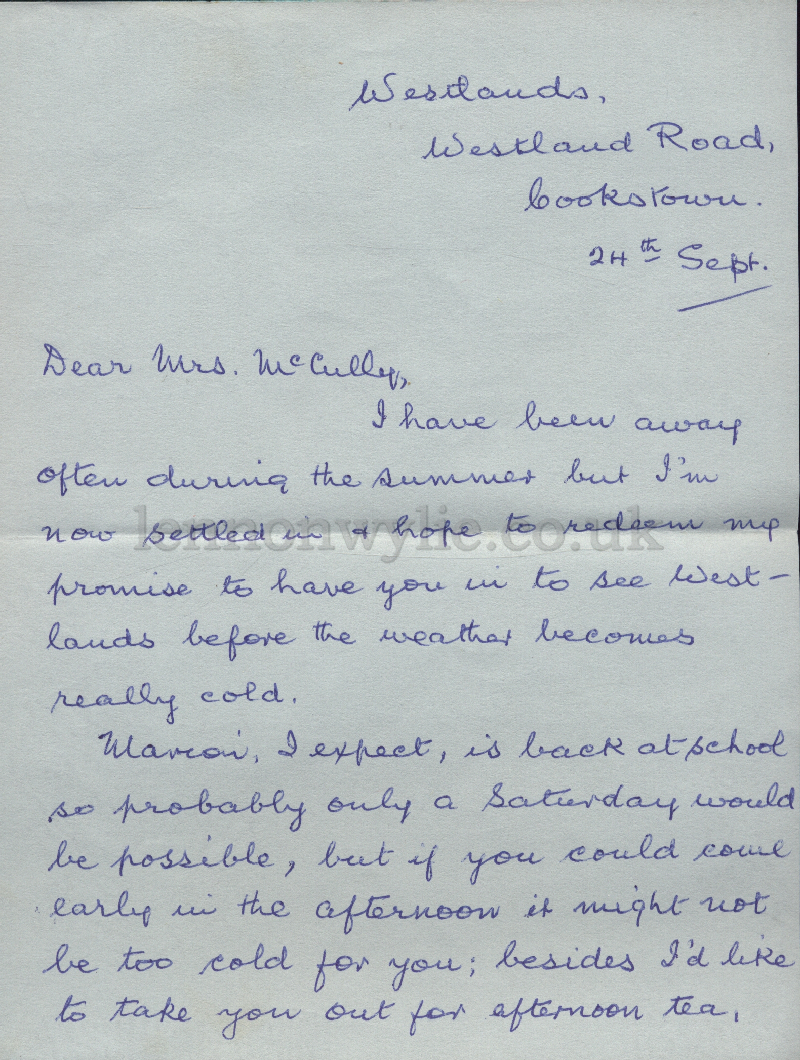 Westlands,
Westland Road,
Cookstown.
24th Sept.
Dear Mrs. McCully,
I have been away
often during the summer but I'm
now settled in & hope to redeem my
lennonwylie.co.uk
promise to have you in to see West-
lands before the weather becomes
really cold.
Marion, I expect, is back at school
so probably only a Saturday would
be possible, but if you could come
early in the afternoon it might not
be too cold for you; besides I'd like
to take you out for afternoon tea,